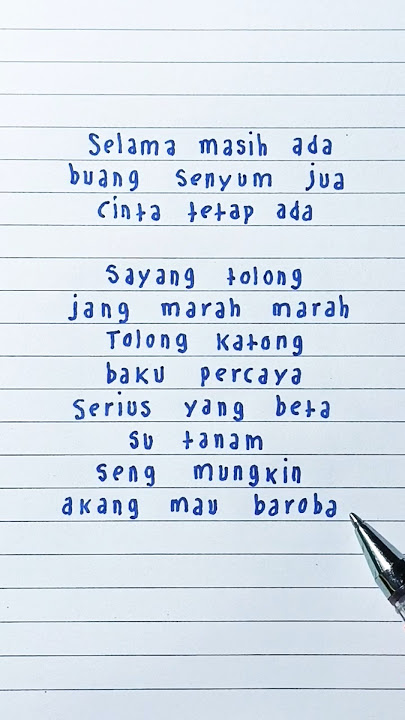 Selama masih ada
buang senyum jua
Cinta tetap ada
Sayang tolong
jang marah marah
Tolong katong
baku percaya
Serius yang beta
su tanam
seng mungkin
akang mau baroba